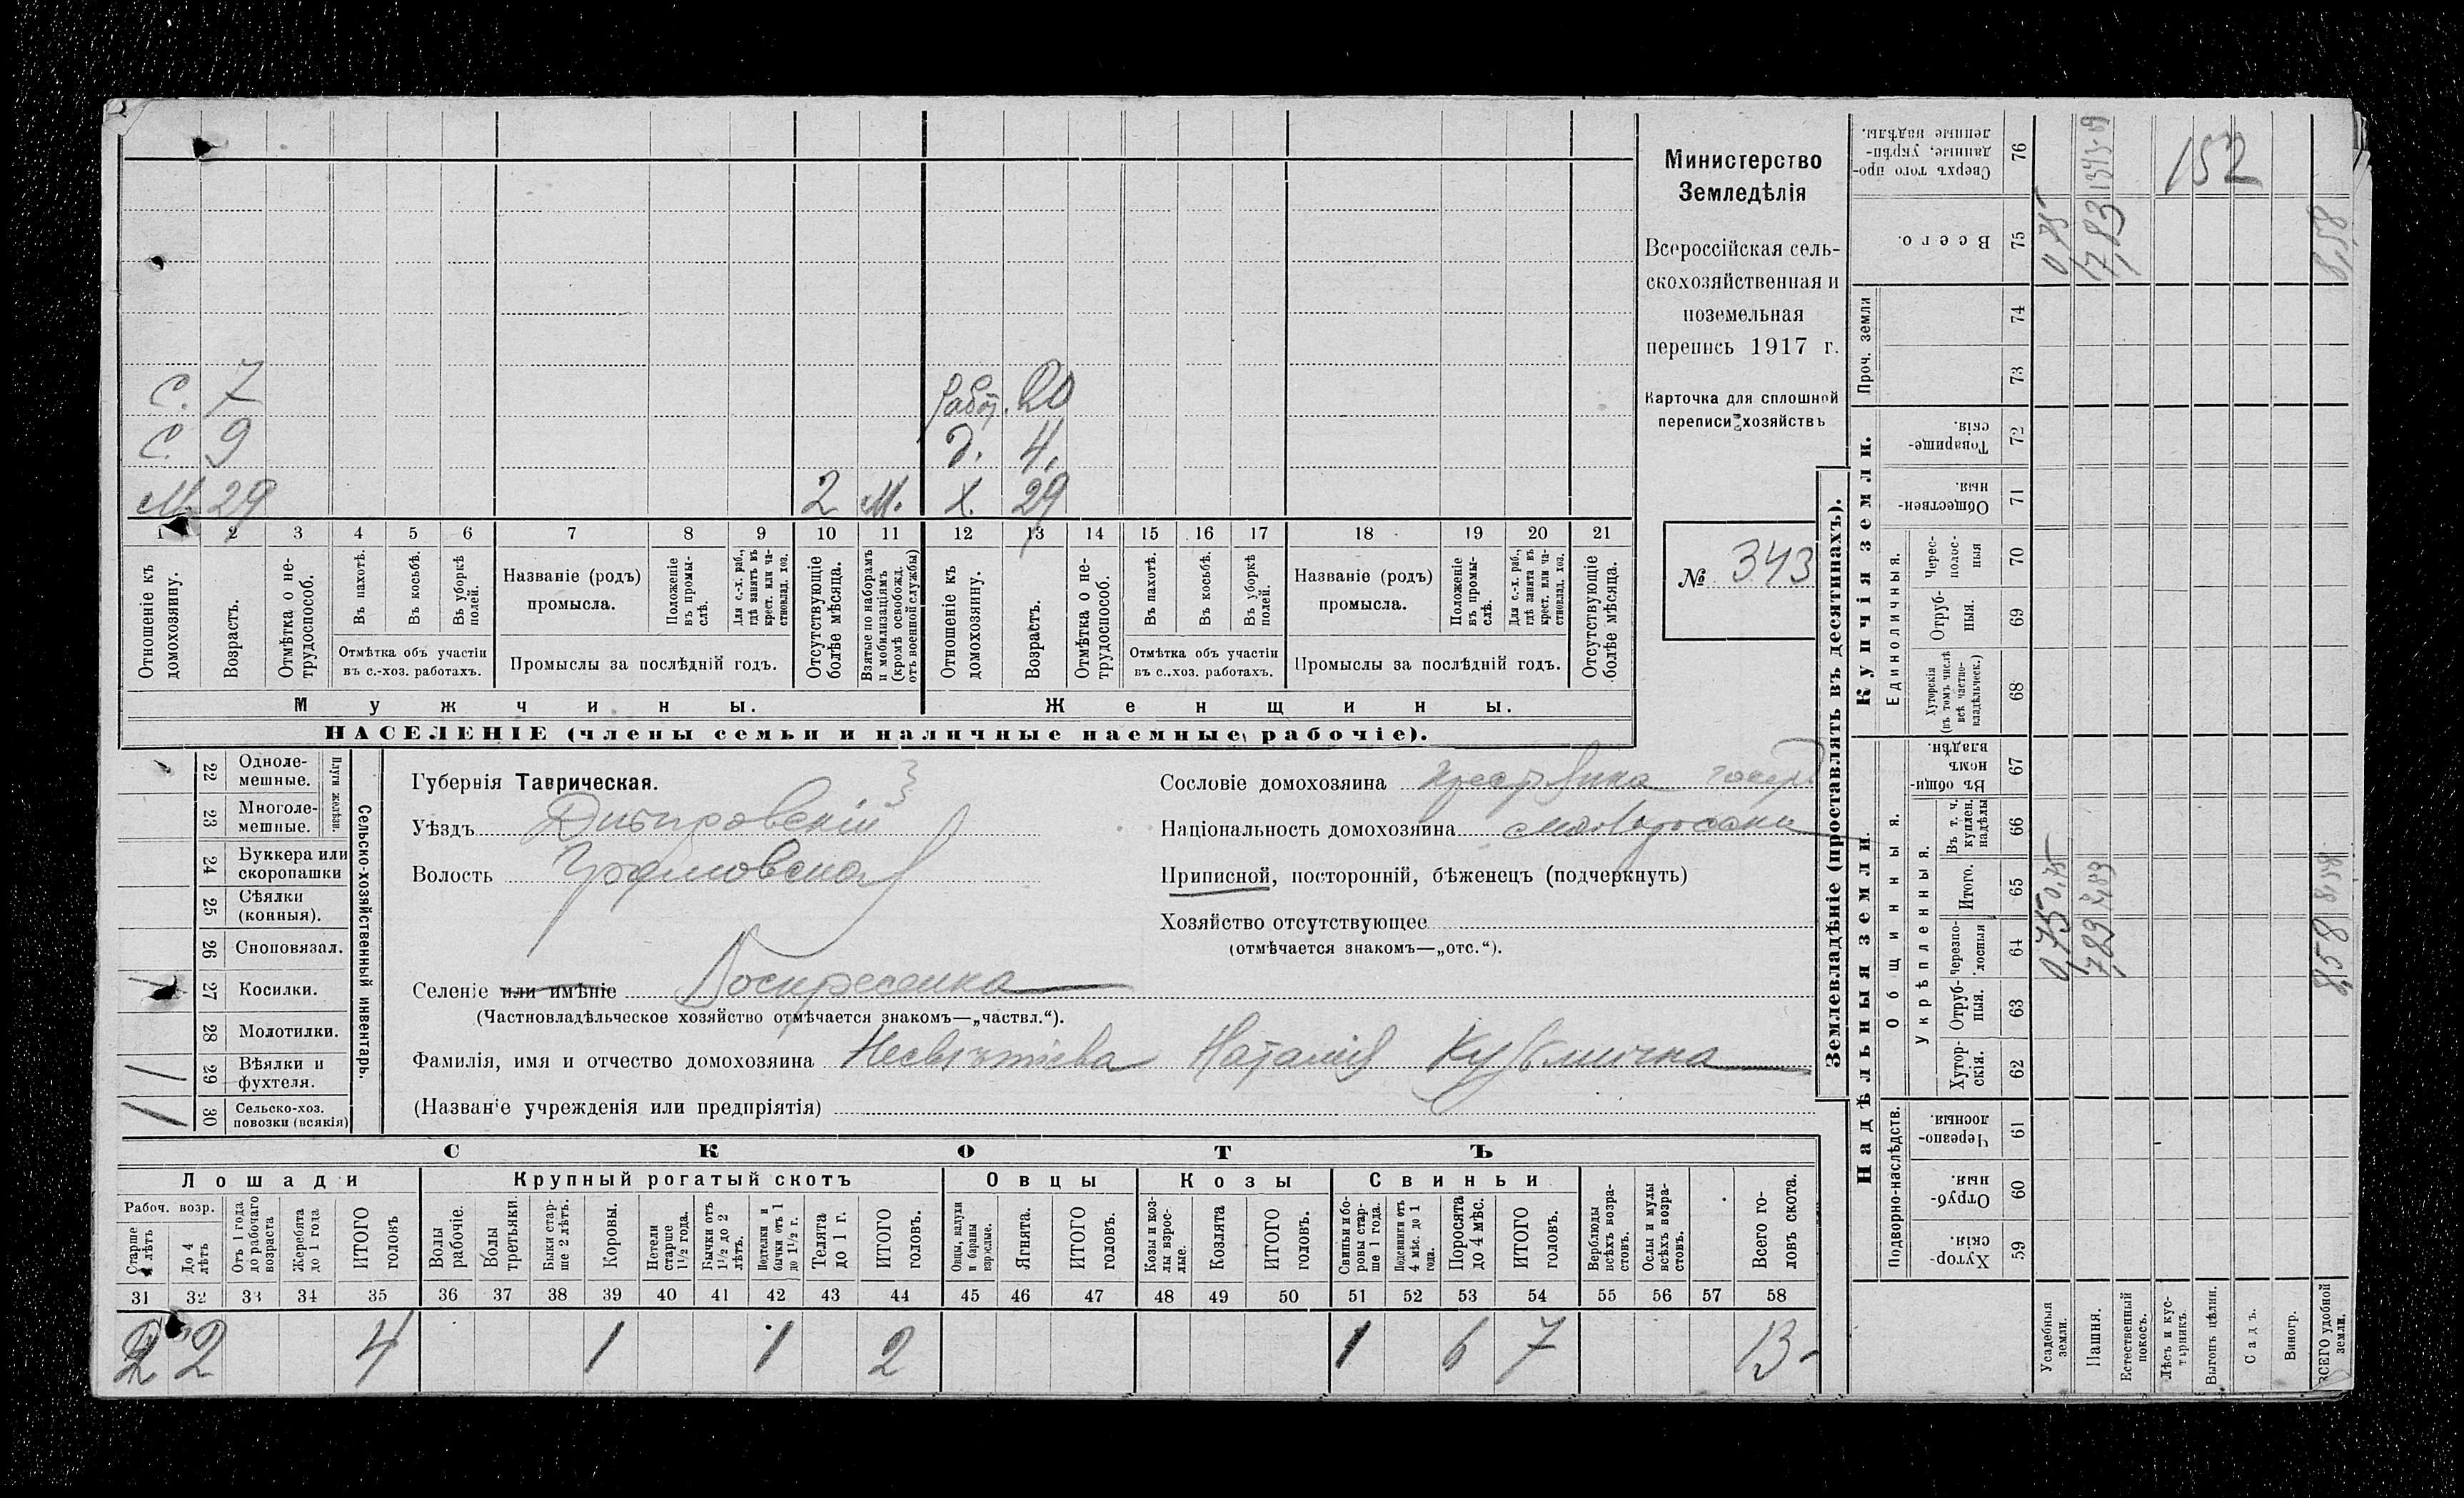 Министерство
Земледѣлія
Всероссійская сель-
скохозяйственная и
поземельная
перепись 1917 г.
Карточка для сплошной
переписи хозяйствъ
№ 343
С. 7
С. 9
М. 29 2 М.
Работ. 20
д. 4.
Х. 29
1 2 3 4 5 6 7 8 9 10 11 12 13 14 15 16 17 18 19 20 21
Отношеніе къ домохозяину.
Возрастъ.
Отмѣтка о не-трудоспособ.
Въ пахотѣ.
Въ косьбѣ.
Въ уборкѣ полей.
Отмѣтка объ участіи
въ с.-хоз. работахъ.
Названіе (родъ)
промысла.
Положеніе въ промы-слѣ.
Для с.-х. раб., гдѣ занятъ въ крест. или ча-стновлад. хоз.
Промыслы за послѣдній годъ.
Отсутствующіе болѣе мѣсяца.
Взятые по наборамъ и мобилизаціямъ (кромѣ освобожд. отъ военной службы)
Отношеніе къ домохозяину.
Возрастъ.
Отмѣтка о не-трудоспособ.
Въ пахотѣ.
Въ косьбѣ.
Въ уборкѣ полей.
Отмѣтка объ участіи
въ с..хоз. работахъ.
Названіе (родъ)
промысла.
Положеніе въ промы-слѣ.
Для с.-х. раб., гдѣ занята въ крест. или ча-стновлад. хоз.
Промыслы за послѣдній годъ.
Отсутствующіе болѣе мѣсяца.
Мужчины.
Женщины.
НАСЕЛЕНІЕ (члены семьи и наличные наемные рабочіе).
Сельско-хозяйственный инвентарь.
Плуги желѣзн.
22 Одноле-мешные.
23 Многоле-мешные.
24 Буккера или скоропашки
25 Сѣялки (конныя).
26 Сноповязал.
27 Косилки.
28 Молотилки.
29 Вѣялки и фухтеля.
30 Сельско-хоз. повозки (всякія)
Губернія Таврическая.
Уѣздъ Днѣпровскій
Волость
Селеніе или имѣніе Воскресенка
(Частновладѣльческое хозяйство отмѣчается знакомъ—„частвл.“).
Фамилія, имя и отчество домохозяина Наталія Кузьминична
(Названіе учрежденія или предпріятія)
Сословіе домохозяина
Національность домохозяина
Приписной, посторонній, бѣженецъ (подчеркнуть)
Хозяйство отсутствующее
(отмѣчается знакомъ—„отс.“).
СКОТЪ
Лошади
Крупный рогатый скотъ
Овцы
Козы
Свиньи
Рабоч. возр.
Старше 4 лѣтъ
До 4 лѣтъ
Отъ 1 года до рабочаго возраста
Жеребята до 1 года
ИТОГО головъ
Волы рабочіе.
Волы третьяки.
Быки стар-ше 2 лѣтъ.
Коровы.
Нетели старше 1½ года.
Бычки отъ 1½ до 2 лѣтъ.
Подтелки и бычки отъ 1 до 1½ г.
Телята до 1 г.
ИТОГО головъ.
Овцы, валухи и бараны взрослые.
Ягнята.
ИТОГО головъ.
Козы и коз-лы взрос-лые.
Козлята
ИТОГО головъ.
Свиньи и бо-ровы стар-ше 1 года.
Подсвинки отъ 4 мѣс. до 1 года.
Поросята до 4 мѣс.
ИТОГО головъ.
Верблюды всѣхъ возра-стовъ.
Ослы и мулы всѣхъ возра-стовъ.
Всего го-ловъ скота.
31 32 33 34 35 36 37 38 39 40 41 42 43 44 45 46 47 48 49 50 51 52 53 54 55 56 57 58
2 2 4 1 1 2 1 6 7 13
Землевладѣніе (проставлять въ десятинахъ).
Надѣльныя земли.
Купчія земли.
Проч. земли
Подворно-наслѣдств.
Общинныя.
Укрѣпленныя.
Единоличныя.
Сверхъ того про-данные, укрѣп-ленные надѣлы. 76
Всего. 75
74
73
Товарище-скія. 72
Обществен-ныя. 71
Черес-полос-ныя 70
Отруб-ныя. 69
Хуторскія (въ томъ числѣ всѣ частно-владѣльческ.) 68
Въ общин-номъ владѣн. 67
Въ т. ч. куплен. надѣлы 66
Итого. 65
Черезпо-лосныя 64
Отруб-ныя. 63
Хутор-скія. 62
Черезпо-лосныя. 61
Отруб-ныя. 60
Хутор-скія. 59
Усадебныя земли. 0,75 0,75 0,75
Пашня. 7,83 7,83 7,83
Естественный покосъ.
Лѣсъ и кус-тарникъ.
Выгонъ цѣлин.
Садъ.
Виногр.
ВСЕГО удобной земли. 8,58 8,58 8,58
152